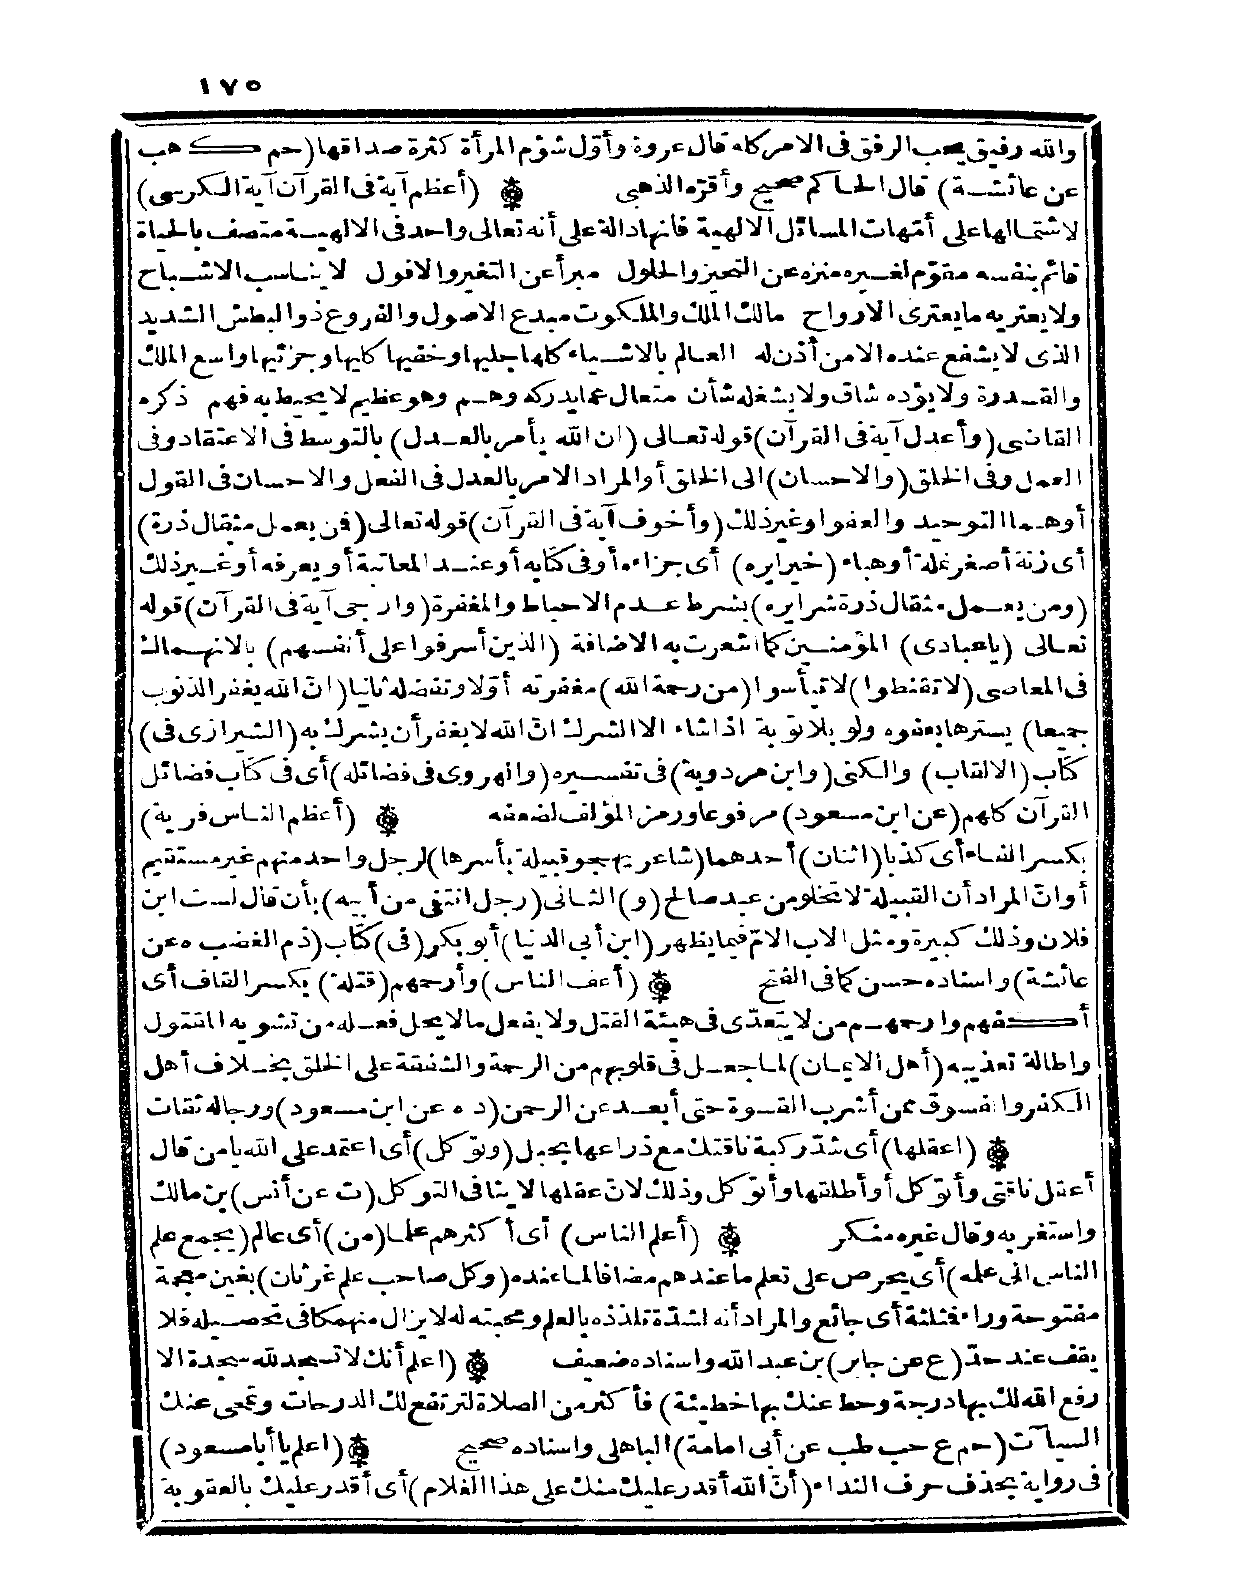 ١٧٥
والله رفيق يحب الرفق فى الامر كله قال عروة وأوّل شؤم المرأة كثرة صداقها (حم ك هب
عن عائشة) قال الحاكم صحيح وأقرّه الذهبى (أعظم آية فى القرآن آية الكرسى)
لاشتمالها على أمّهات المسائل الالهية فانها دالة على أنه تعالى واحد فى الالهية متصف بالحياة
قائم بنفسه مقوّم لغيره منزه عن التحيز والحلول مبرأ عن التغير والافول لا يناسب الاشباح
ولا يعتريه ما يعترى الارواح مالك الملك والملكوت مبدع الاصول والفروع ذو البطش الشديد
الذى لا يشفع عنده الا من أذن له العالم بالاشياء كلها جليها وخفيها كليها وجزئيها واسع الملك
والقدرة ولا يؤده شاق ولا يشغله شأن متعال عما يدركه وهم وهو عظيم لا يحيط به فهم ذكره
القاضى (وأعدل آية فى القرآن) قوله تعالى (ان الله يأمر بالعدل) بالتوسط فى الاعتقاد وفى
العمل وفى الخلق (والاحسان) الى الخلق أو المراد الامر بالعدل فى الفعل والاحسان فى القول
أو هما التوحيد والعفو وغير ذلك (وأخوف آية فى القرآن) قوله تعالى (فمن يعمل مثقال ذرة)
أى زنة أصغر نملة أو هباء (خيرا يره) أى جزاءه أو فى كتابه أو عند المعاتبة أو يعرفه أو غير ذلك
(ومن يعمل مثقال ذرة شرا يره) بشرط عدم الاحباط والمغفرة (وارجى آية فى القرآن) قوله
تعالى (يا عبادى) المؤمنين كما اشعرت به الاضافة (الذين أسرفوا على أنفسهم) بالانهماك
فى المعاصى (لا تقنطوا) لا تيأسوا (من رحمة الله) مغفرته أوّلا وتفضله ثانيا (انّ الله يغفر الذنوب
جميعا) يسترها بعفوه ولو بلا توبة اذا شاء الا الشرك انّ الله لا يغفر أن يشرك به (الشيرازى فى)
كتاب (الالقاب) والكنى (وابن مردوية) فى تفسيره (والهروى فى فضائله) أى فى كتاب فضائل
القرآن كلهم (عن ابن مسعود) مرفوعا ورمز المؤلف لضعفه (أعظم الناس فرية)
بكسر الفاء أى كذبا (اثنان) أحدهما (شاعر يهجو قبيلة بأسرها) لرجل واحد منهم غير مستقيم
أو انّ المراد أن القبيلة لا تخلو من عبد صالح (و) الثانى (رجل انتفى من أبيه) بأن قال لست ابن
فلان وذلك كبيرة ومثل الاب الامّ فيما يظهر (ابن أبى الدنيا) أبو بكر (فى) كتاب (ذم الغضب ه عن
عائشة) واسناده حسن كما فى الفتح (أعف الناس) وأرحمهم (قتلة) بكسر القاف أى
أكفهم وارحمهم من لا يتعدّى فى هيئة القتل ولا يفعل ما لا يحل فعله من تشويه المقتول
واطالة تعذيبه (أهل الايمان) لما جعل فى قلوبهم من الرحمة والشفقة على الخلق بخلاف أهل
الكفر والفسوق ممن أشرب القسوة حتى أبعد عن الرحمن (د ه عن ابن مسعود) ورجاله ثقات
(اعقلها) أى شدّ ركبة ناقتك مع ذراعها بحبل (وتوكل) أى اعتمد على الله يا من قال
أعقل ناقتى وأتوكل أو أطلقها وأتوكل وذلك لان عقلها لا ينافى التوكل (ت عن أنس) بن مالك
واستغربه وقال غيره منكر (أعلم الناس) أى أكثرهم علما (من) أى عالم (يجمع علم
الناس الى علمه) أى يحرص على تعلم ما عندهم مضافا لما عنده (وكل صاحب علم غرثان) بغين معجمة
مفتوحة وراء فمثلثة أى جائع والمراد أنه لشدة تلذذه بالعلم ومحبته له لا يزال منهمكا فى تحصيله فلا
يقف عند حدّ (ع عن جابر) بن عبد الله واسناده ضعيف (اعلم أنك لا تسجد لله سجدة الا
رفع الله لك بها درجة وحط عنك بها خطيئة) فأكثر من الصلاة لترتفع لك الدرجات وتمحى عنك
السيآت (حم ع حب طب عن أبى امامة) الباهلى واسناده صحيح (اعلم يا أبا مسعود)
فى رواية بحذف حرف النداء (أنّ الله أقدر عليك منك على هذا الغلام) أى أقدر عليك بالعقوبة